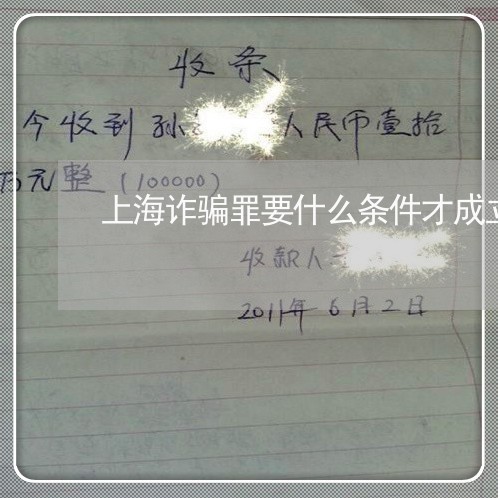 收条
今收到孙 人民币壹拾
万元整(100000)
上海诈骗罪要什么条件才成立
收款人
2011年6月2日